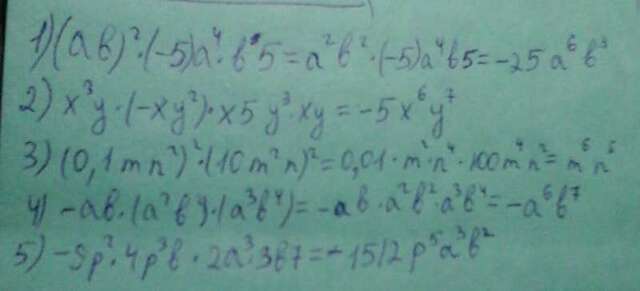 1) (ab)²·(-5)a⁴·b⁵5=a²b²·(-5)a⁴b5=-25a⁶b³
2) x³y·(-xy²)·x5y³·xy=-5x⁶y⁷
3) (0,1mn²)²·(10m²n)²=0,01·m²n⁴·100m⁴n²=m⁶n⁶
4) -ab·(a²b⁴)·(a³b⁴)=-ab·a²b²·a³b⁴=-a⁶b⁷
5) -9p²·4p³b·2a³·3b7=-1512p⁵a³b²